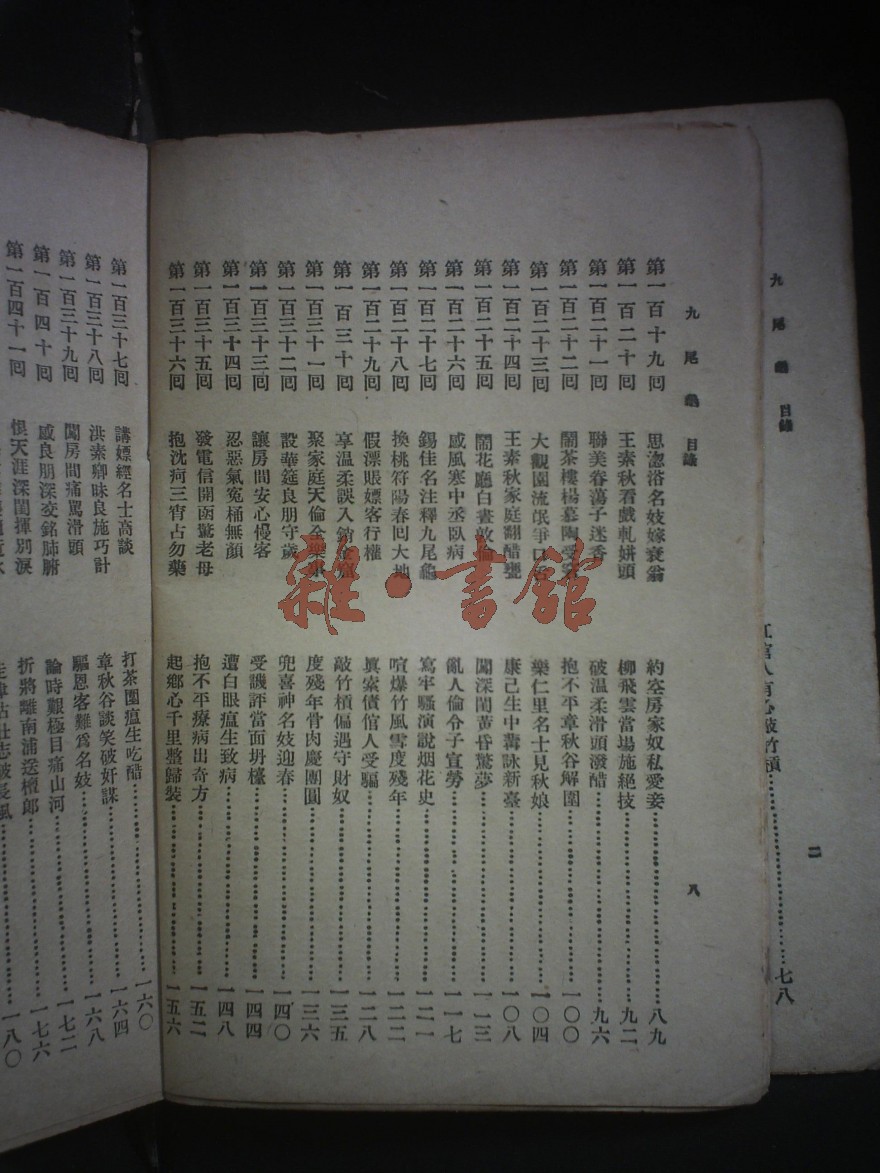 目錄
江官人有心敲竹槓……七八
二
九尾龜 目錄
八
第一百十九回 思淴浴名妓嫁衰翁 約空房家奴私愛妾……八九
第一百二十回 王素秋看戲軋姘頭 柳飛雲當場施絕技……九二
第一百二十一回 聯美眷蕩子迷香 破溫柔滑頭潑醋……九六
第一百二十二回 鬧茶樓楊慕陶受窘 抱不平章秋谷解圍……一〇〇
第一百二十三回 大觀園流氓爭口舌 樂仁里名士見秋娘……一〇四
第一百二十四回 王素秋家庭翻醋甕 康己生中冓詠新臺……一〇八
第一百二十五回 鬧花廳白晝效 闖深閨黃昏驚夢……一一三
第一百二十六回 感風寒中丞臥病 亂人倫令子宣勞……一一七
第一百二十七回 錫佳名注釋九尾龜 寫牢騷演說烟花史……一二一
第一百二十八回 換桃符陽春回大地 喧爆竹風雪度殘年……一二二
第一百二十九回 假漂賬嫖客行權 眞索債倌人受騙……一二八
第一百三十回 享溫柔誤入銷金窟 敲竹槓偏遇守財奴……一三五
第一百三十一回 聚家庭天倫全樂事 度殘年骨肉慶團圓……一三六
第一百三十二回 設華筵良朋守歲 兜喜神名妓迎春……一四〇
第一百三十三回 讓房間安心慢客 受譏評當面坍檯……一四四
第一百三十四回 忍惡氣冤桶無顏 遭白眼瘟生致病……一四八
第一百三十五回 發電信開函驚老母 抱不平療病出奇方……一五二
第一百三十六回 抱沈疴三宵占勿藥 起鄉心千里整歸裝……一五六
第一百三十七回 講嫖經名士高談 打茶圍瘟生吃醋……一六〇
第一百三十八回 洪素卿昧良施巧計 章秋谷談笑破奸謀……一六四
第一百三十九回 闖房間痛罵滑頭 驅恩客難爲名妓……一六八
第一百四十回 感良朋深交銘肺腑 論時艱極目痛山河……一七二
第一百四十一回 恨天涯深閨揮別淚 折將離南浦送檀郎……一七六
走津沽壯志破長風……一八〇
雜·書館